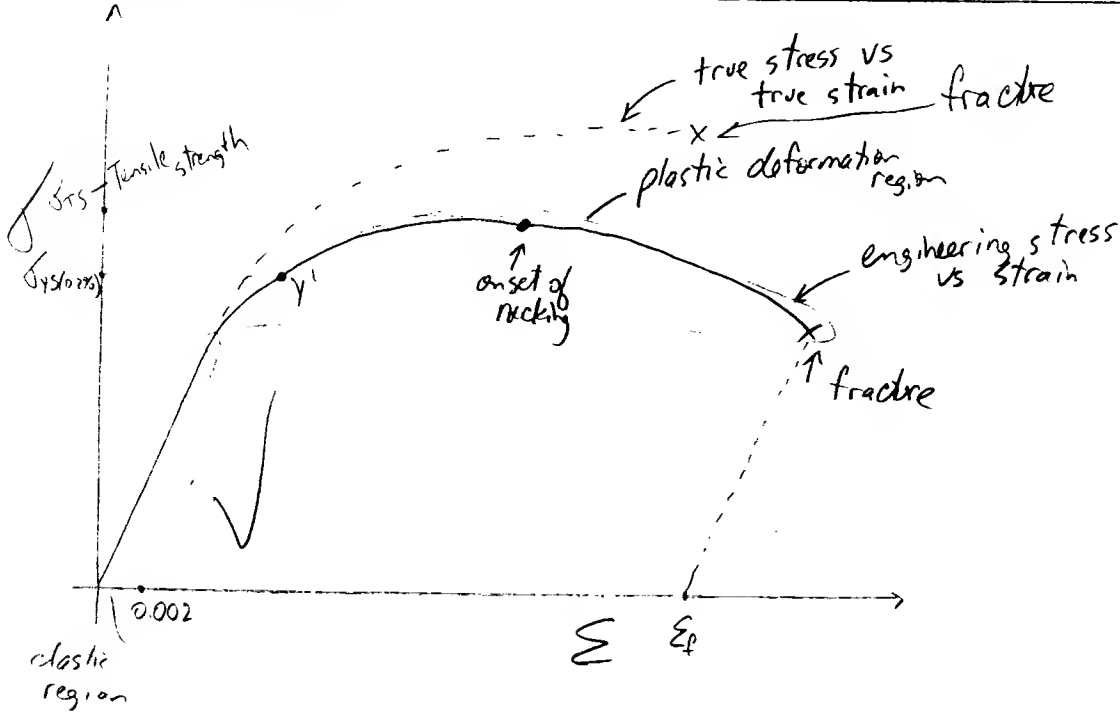 true stress vs
true strain
fracture
σTS - Tensile strength
σ
plastic deformation
region
σYS(0.2%)
y'
onset of
necking
engineering stress
vs strain
fracture
0.002
Σ
εf
elastic
region